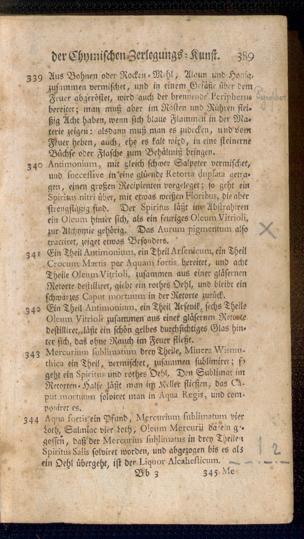 der Chymischen Zerlegungs-Kunst. 389
339 Aus Bohnen oder Rocken-Mehl, Alaun und Honig,
zusammen vermischet, und in einem Gefäße über dem
Feuer abgeröstet, wird auch der brennende Peripherus
bereitet; man muß aber im Rösten und Rühren flei-
ßig Acht haben, wenn sich blaue Flammen in der Ma-
terie zeigen: alsdann muß man es zudecken, und vom
Feuer heben, auch, ehe es kalt wird, in eine steinerne
Büchse oder Flasche zum Behältniß bringen.
340 Antimonium, mit gleich schwer Salpeter vermischet,
und successive in eine glüende Retorta duplata getra-
gen, einen großen Recipienten vorgeleget; so geht ein
Spiritus nitri über, mit etwas weißen Floribus, die aber
strengflüßig sind. Der Spiritus läßt im Abstrahiren
ein Oleum hinter sich, als ein feuriges Oleum Vitrioli,
zur Alchymie gehörig. Das Aurum pigmentum also
tractiret, zeiget etwas Besonders.
341 Ein Theil Antimonium, ein Theil Arsenicum, ein Theil
Crocum Martis per Aquam fortis bereitet, und acht
Theile Oleum Vitrioli, zusammen aus einer gläsernen
Retorte destilliret, giebt ein rothes Oehl, und bleibt ein
schwarzes Caput mortuum in der Retorte zurück.
342 Ein Theil Antimonium, ein Theil Arsenik, sechs Theile
Oleum Vitrioli zusammen aus einer gläsernen Retorte
destilliret, läßt ein schön gelbes durchsichtiges Glas hin-
ter sich, das ohne Rauch im Feuer fließt.
343 Mercurium sublimatum drey Theile, Minera Wismu-
thica ein Theil, vermischet, zusammen sublimiret; so
geht ein Spiritus und rothes Oehl. Den Sublimat im
Retorten-Halse läßt man im Keller fließen, das Ca-
put mortuum solviret man in Aqua Regis, und com-
poniret es.
344 Aqua fortis ein Pfund, Mercurium sublimatum vier
Loth, Salmiac vier Loth, Oleum Mercurii darein ge-
gossen, daß der Mercurius sublimatus in drey Theilen
Spiritus Salis solviret worden, und abgezogen bis es als
ein Oehl übergeht, ist der Liquor Alcahesticum.
Bb 3 345 Me-
12